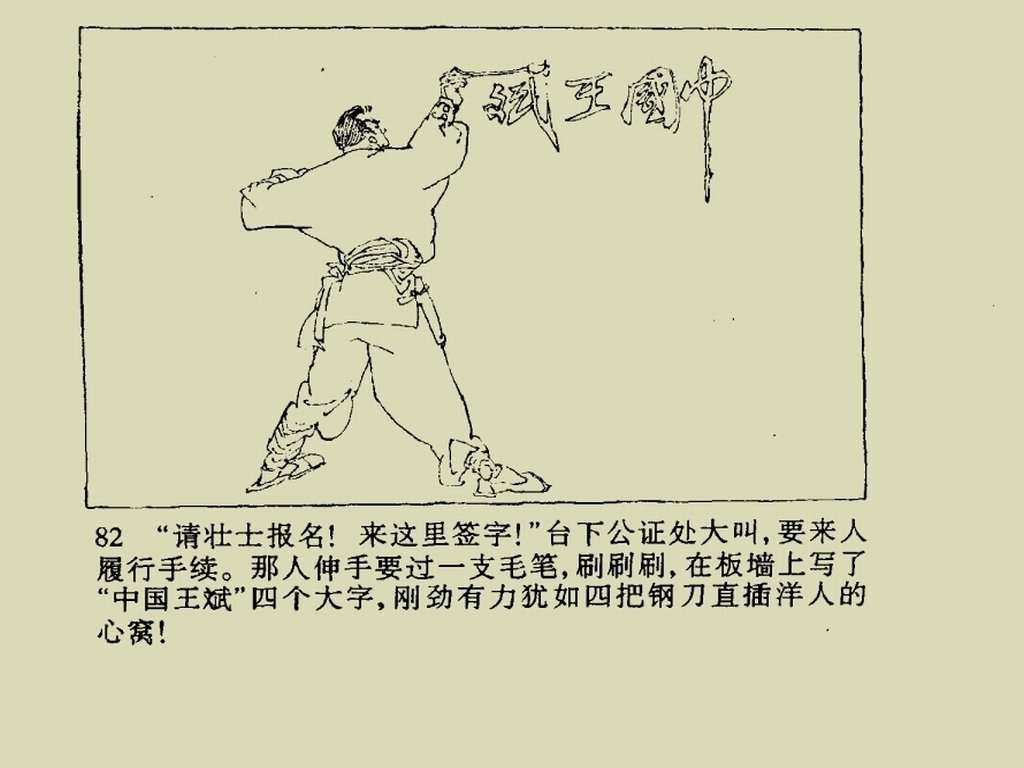 斌王國中
82 “请壮士报名! 来这里签字!”台下公证处大叫,要来人
履行手续。那人伸手要过一支毛笔,刷刷刷,在板墙上写了
“中国王斌”四个大字,刚劲有力犹如四把钢刀直插洋人的
心窝!